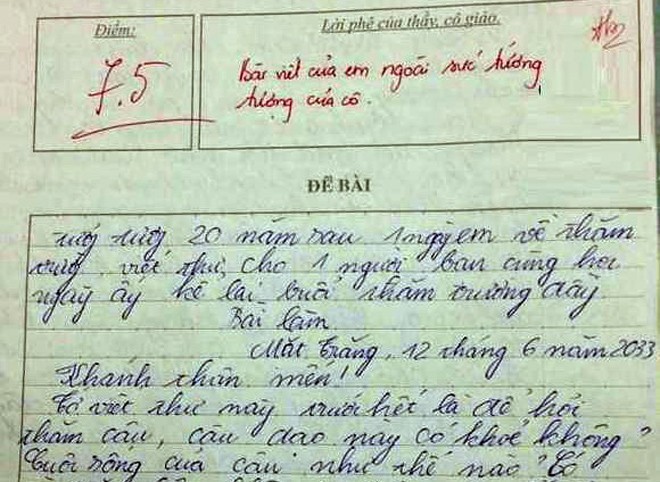 Điểm:
Lời phê của thầy, cô giáo.
7.5
Bài viết của em ngoài sức tưởng
tượng của cô.
ĐỀ BÀI
20 năm sau 1 ngày em về thăm
trường, viết thư cho 1 người bạn cùng học
ngày ấy kể lại buổi thăm trường đấy.
Bài làm
Mặt Trăng, 12 tháng 6 năm 2033
Khanh thân mến!
Tớ viết thư này trước hết là để hỏi
thăm cậu, cậu dạo này có khoẻ không?
Cuộc sống của cậu như thế nào? Có